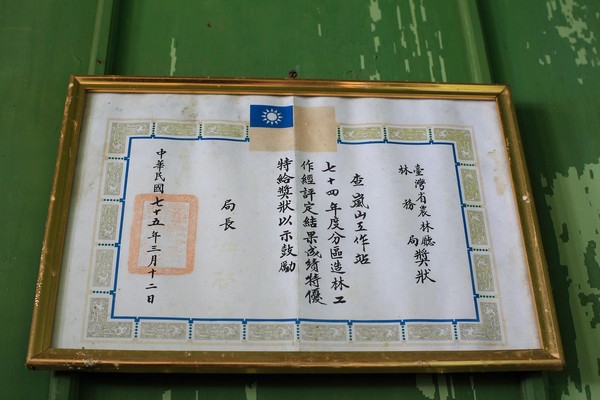 臺灣省農林廳
林務局
獎狀
查嵐山工作站
七十四年度分區造林工
作經評定結果成績特優
特給獎狀以示鼓勵
局長
中華民國七十五年三月十二日